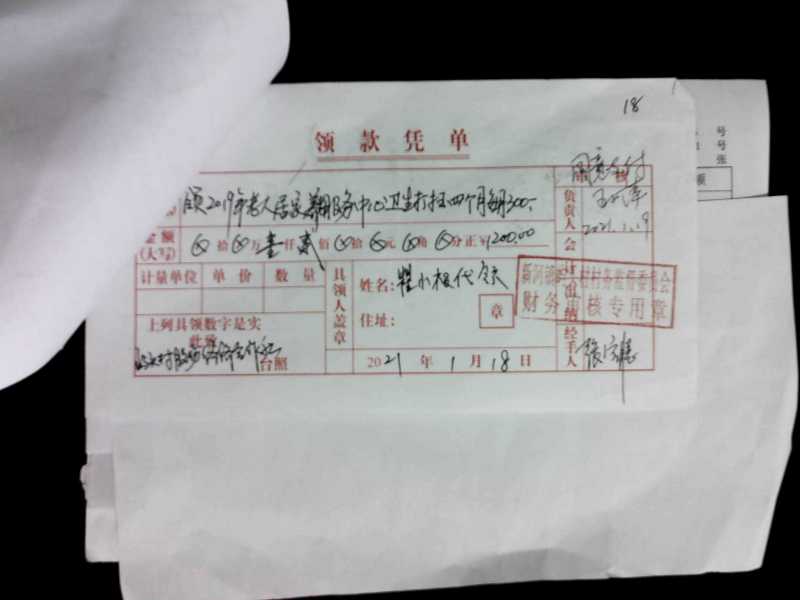 18
领款凭单
号
号
张
额
领2019年老人居家养老服务中心卫生打扫四个月每月300.
审核
同意支付
金额
(大写)
⊗拾⊗万壹仟贰佰⊗拾⊗元⊗角⊗分正¥1200.00
负责人
2021.1.19
计量单位 单价 数量
具领人盖章
姓名:
代领
住址:
章
会计
出纳
村村务监督委员会
财务审核专用章
上列具领数字是实
此致
台照
2021年1月18日
经手人